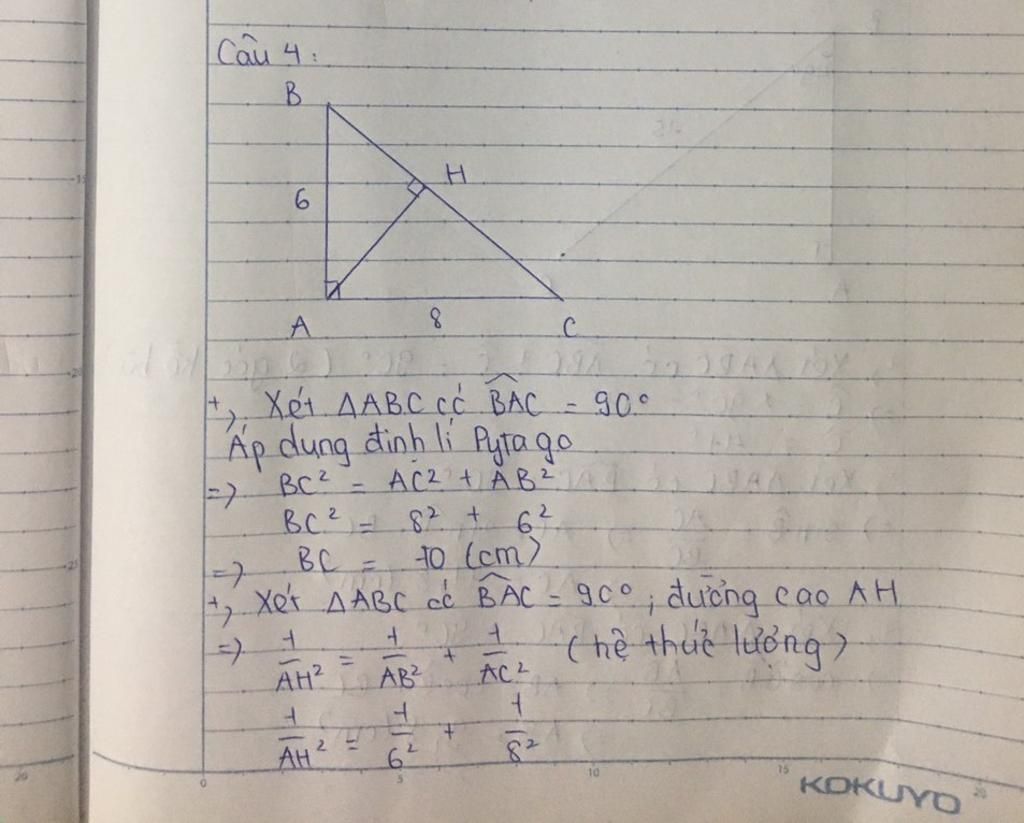 Câu 4:
B
H
6
A
8
C
+, Xét ΔABC có B̂AC = 90°
Áp dụng định lí Pytago
=> BC² = AC² + AB²
BC² = 8² + 6²
=> BC = 10 (cm)
+, Xét ΔABC có B̂AC = 90°, đường cao AH
=> 1/AH² = 1/AB² + 1/AC² (hệ thức lượng)
1/AH² = 1/6² + 1/8²
0 5 10 15 20
KOKUYO